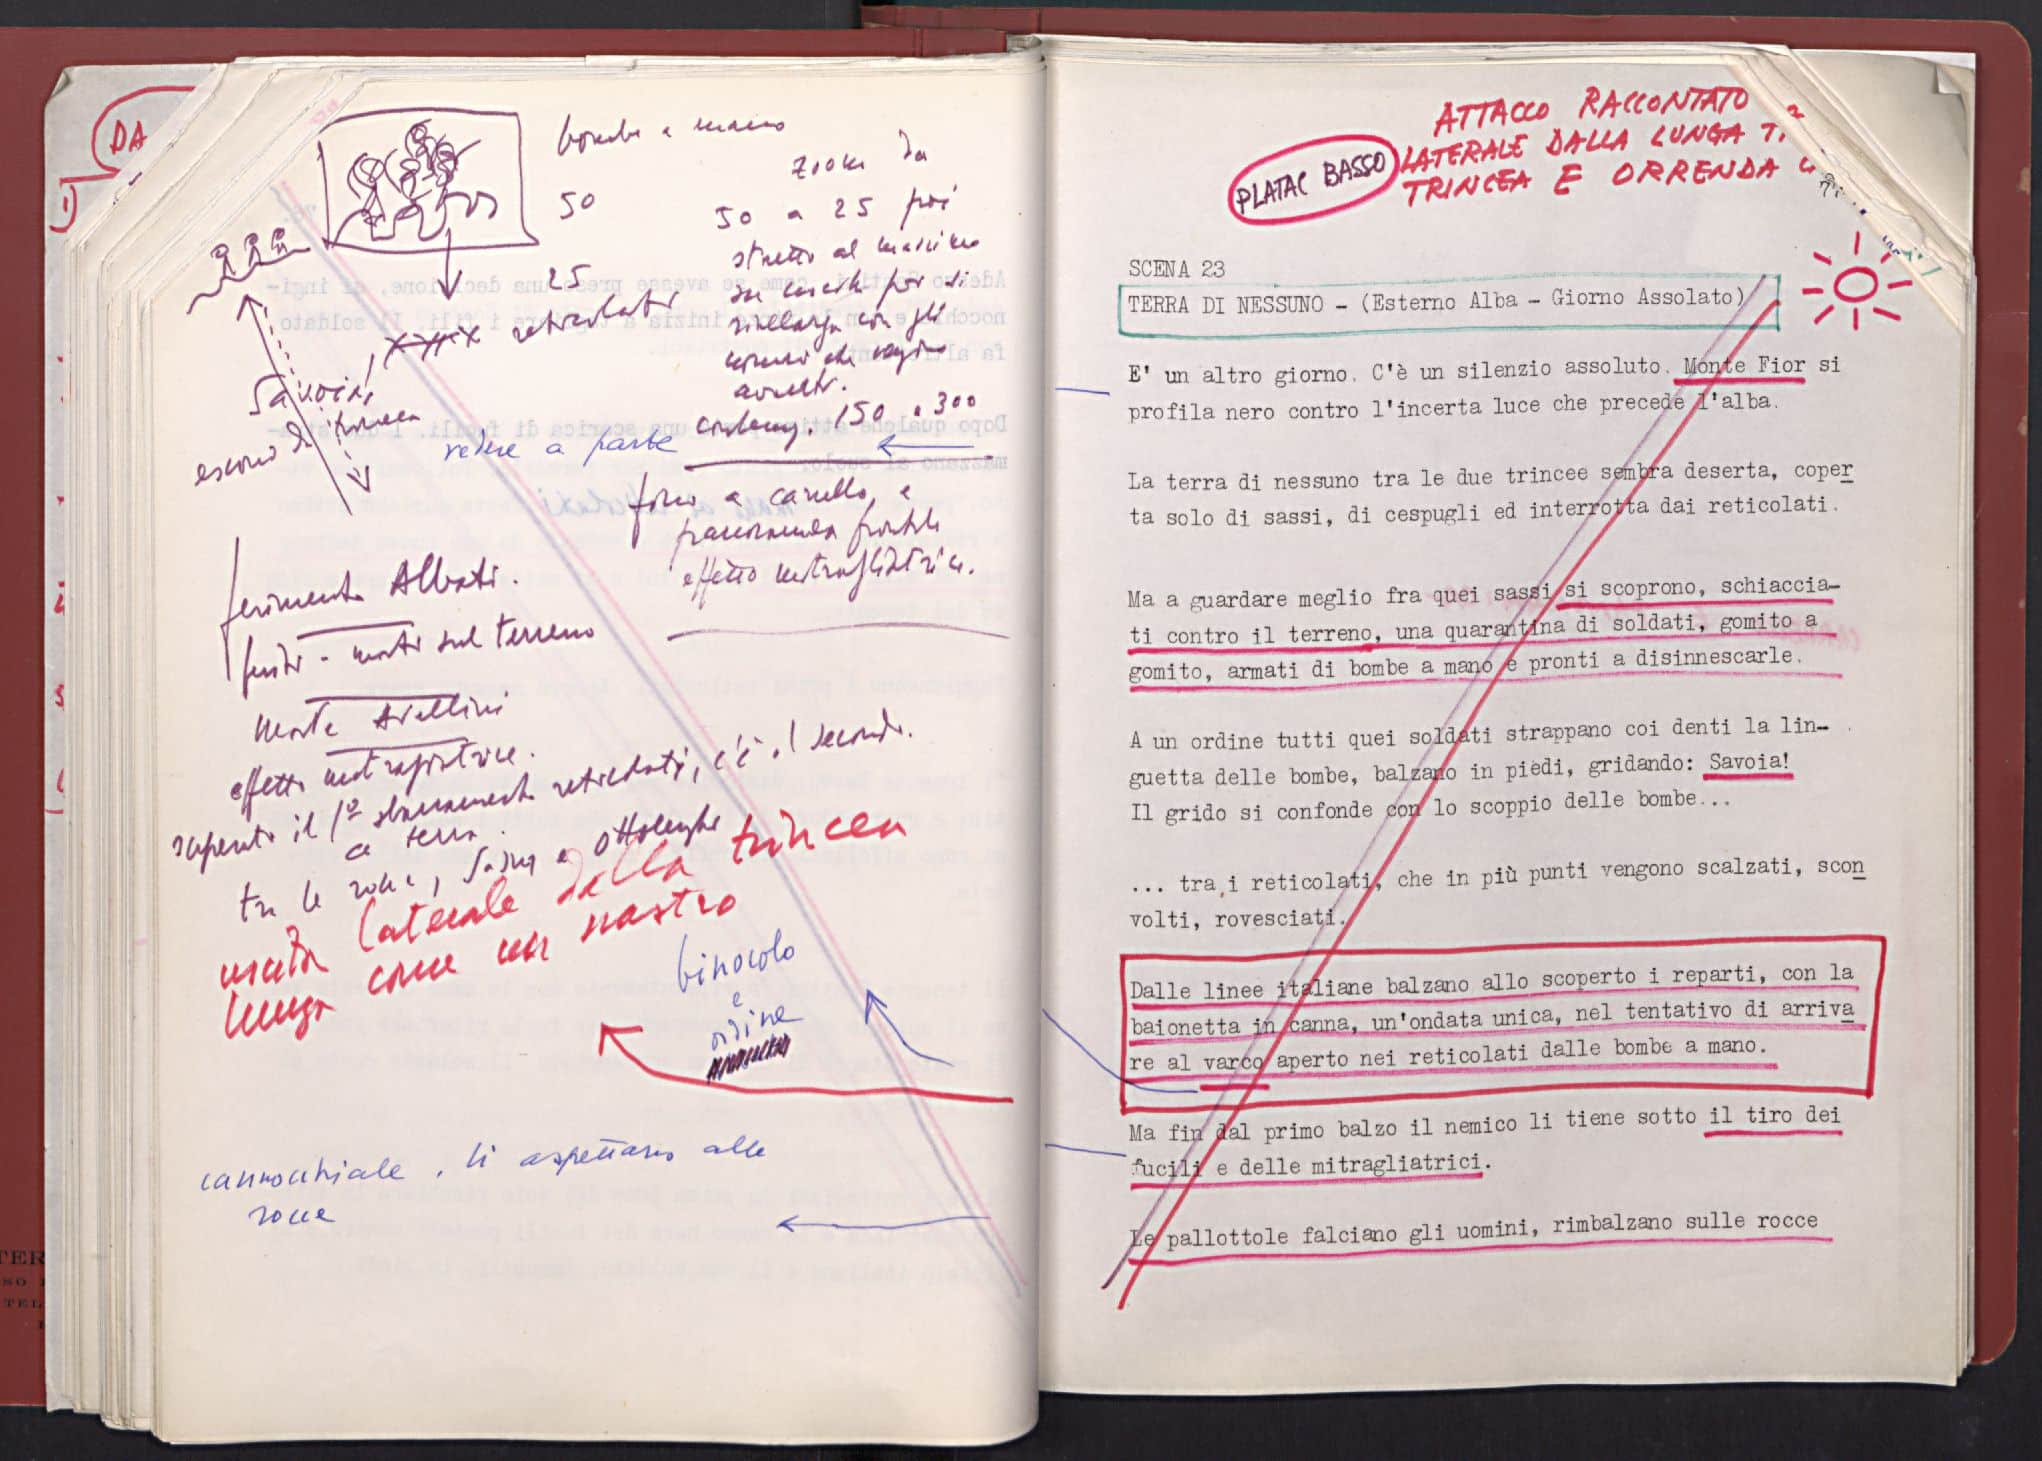 DA
1)
bombe a mano
50
25
zoom da
50 a 25 poi
stretto al massimo
su
con gli
avanti.
150 e 300
reticolati
Savoia,
escono di trincea
vedere a parte
a carrello, e
panoramica frontale
effetto mitragliatrice.
ferimento Albati.
feriti - morti sul terreno
morte Avellini
effetto mitragliatrice.
superato il 1° sbarramento reticolati, c'è il secondo.
a terra.
tra le rocce, Sassu e Ottolenghi
uscita laterale dalla trincea
lunga come un nastro
binocolo
e
ordine
cannocchiale, li aspettano alle
rocce
TER
SO
TEL
ATTACCO RACCONTATO
PLATAC BASSO
LATERALE DALLA LUNGA
TRINCEA E ORRENDA
SCENA 23
TERRA DI NESSUNO - (Esterno Alba - Giorno Assolato)
E' un altro giorno. C'è un silenzio assoluto. Monte Fior si
profila nero contro l'incerta luce che precede l'alba.
La terra di nessuno tra le due trincee sembra deserta, coper
ta solo di sassi, di cespugli ed interrotta dai reticolati.
Ma a guardare meglio fra quei sassi si scoprono, schiaccia-
ti contro il terreno, una quarantina di soldati, gomito a
gomito, armati di bombe a mano e pronti a disinnescarle.
A un ordine tutti quei soldati strappano coi denti la lin-
guetta delle bombe, balzano in piedi, gridando: Savoia!
Il grido si confonde con lo scoppio delle bombe...
... tra i reticolati, che in più punti vengono scalzati, scon
volti, rovesciati.
Dalle linee italiane balzano allo scoperto i reparti, con la
baionetta in canna, un'ondata unica, nel tentativo di arriva
re al varco aperto nei reticolati dalle bombe a mano.
Ma fin dal primo balzo il nemico li tiene sotto il tiro dei
fucili e delle mitragliatrici.
Le pallottole falciano gli uomini, rimbalzano sulle rocce